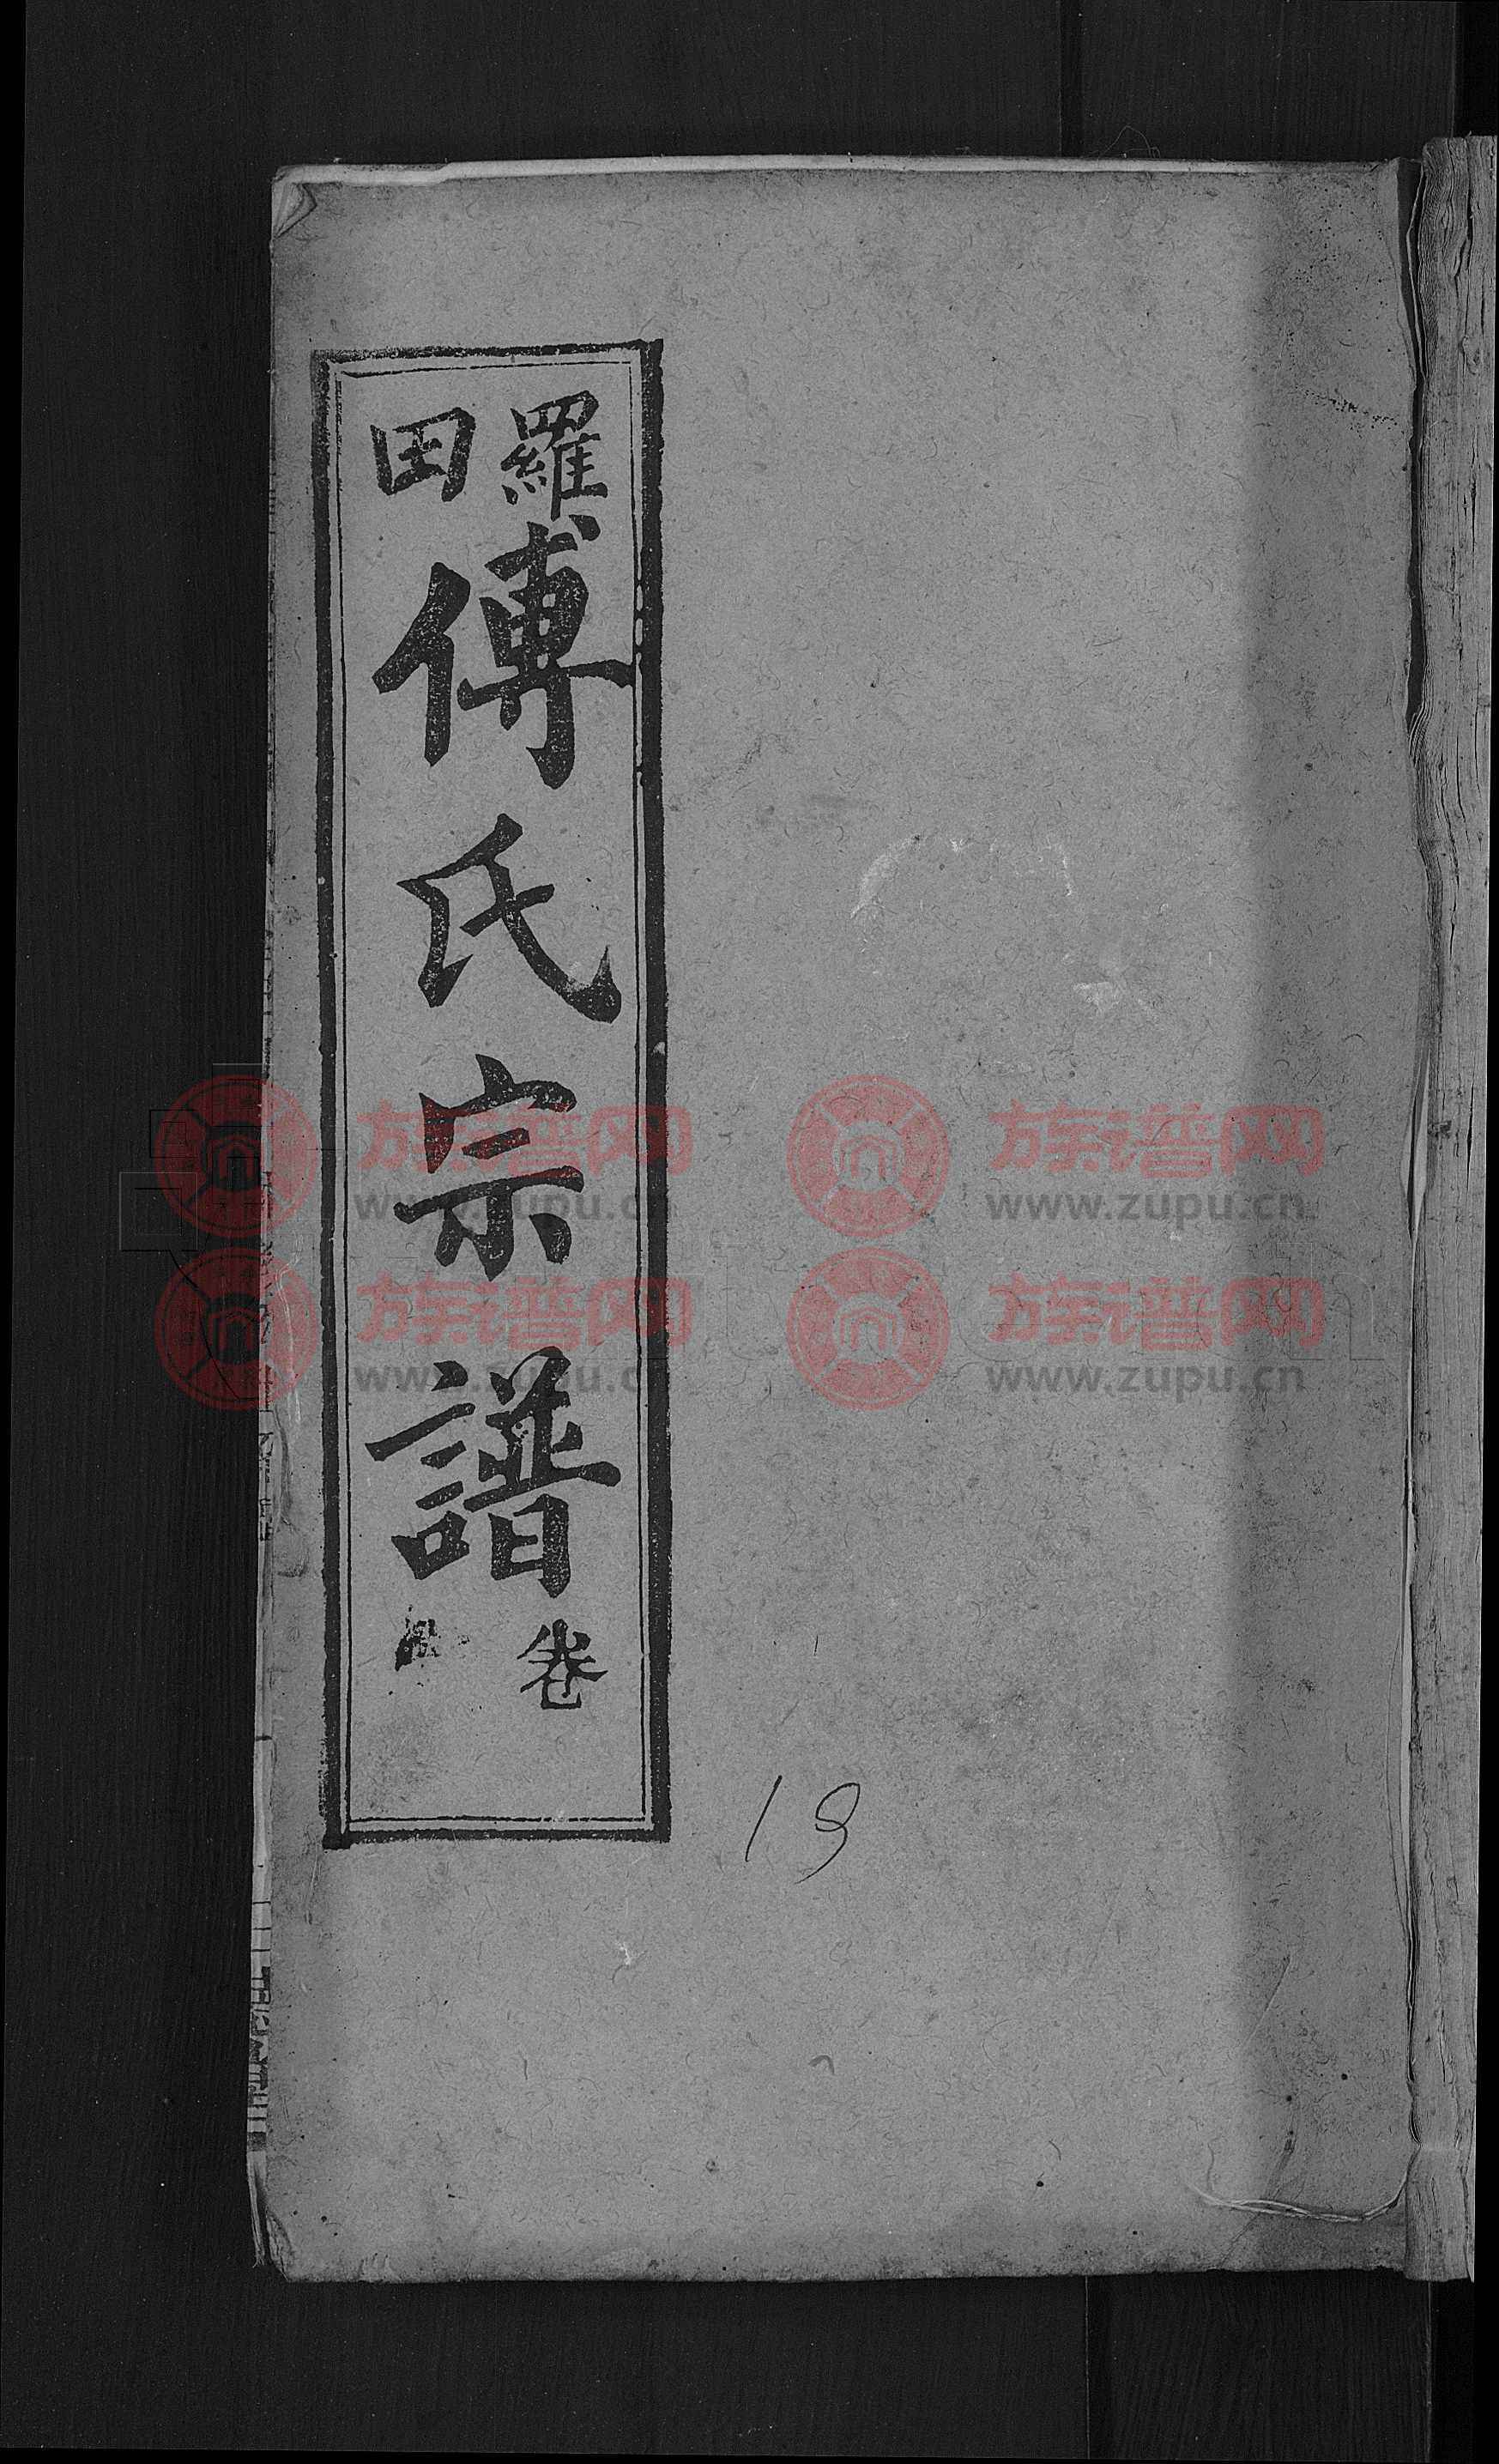 羅田
傅氏宗譜
卷
19
族谱网
www.zupu.cn
族谱网
www.zupu.cn
族谱网
www.zupu.cn
族谱网
www.zupu.cn